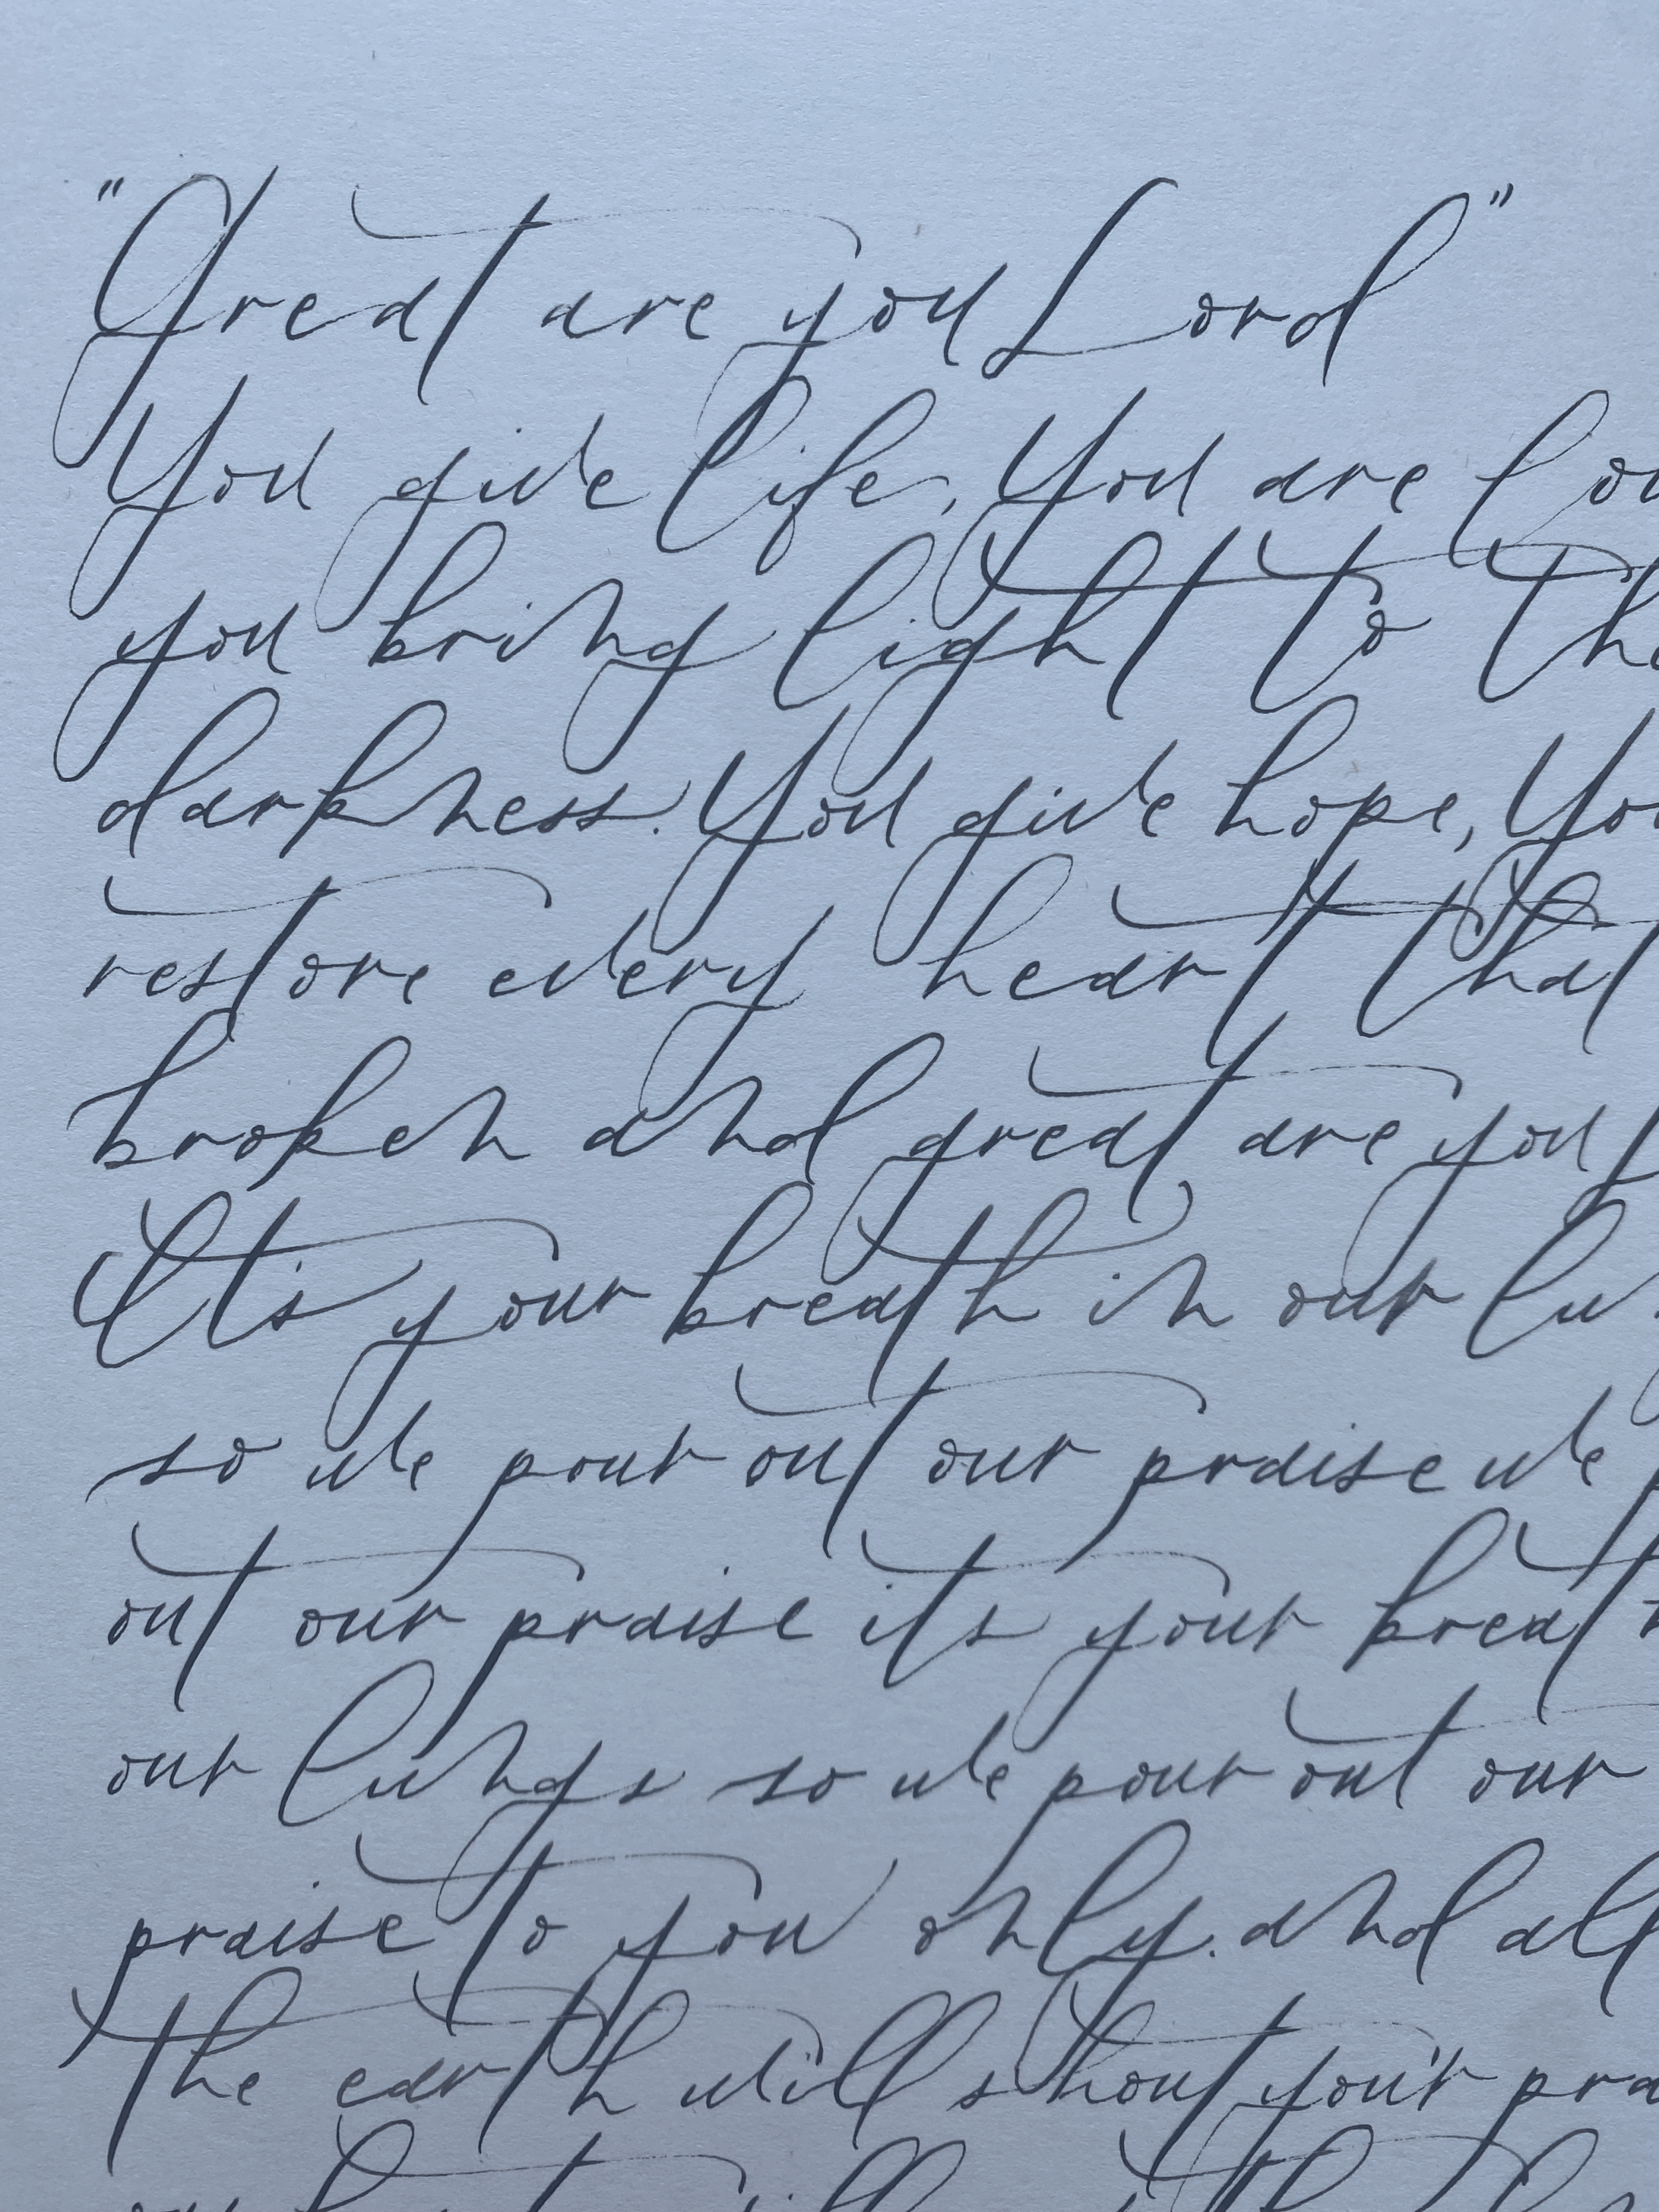 "Great are you Lord"
You give life, You are
you bring light to
darkness. You give hope,
restore every heart that
broken and great are you
It's your breath in our
so we pour out our praise we
out our praise its your breat
our lungs so we pour out our
praise to you only. and all
the earth will shout your